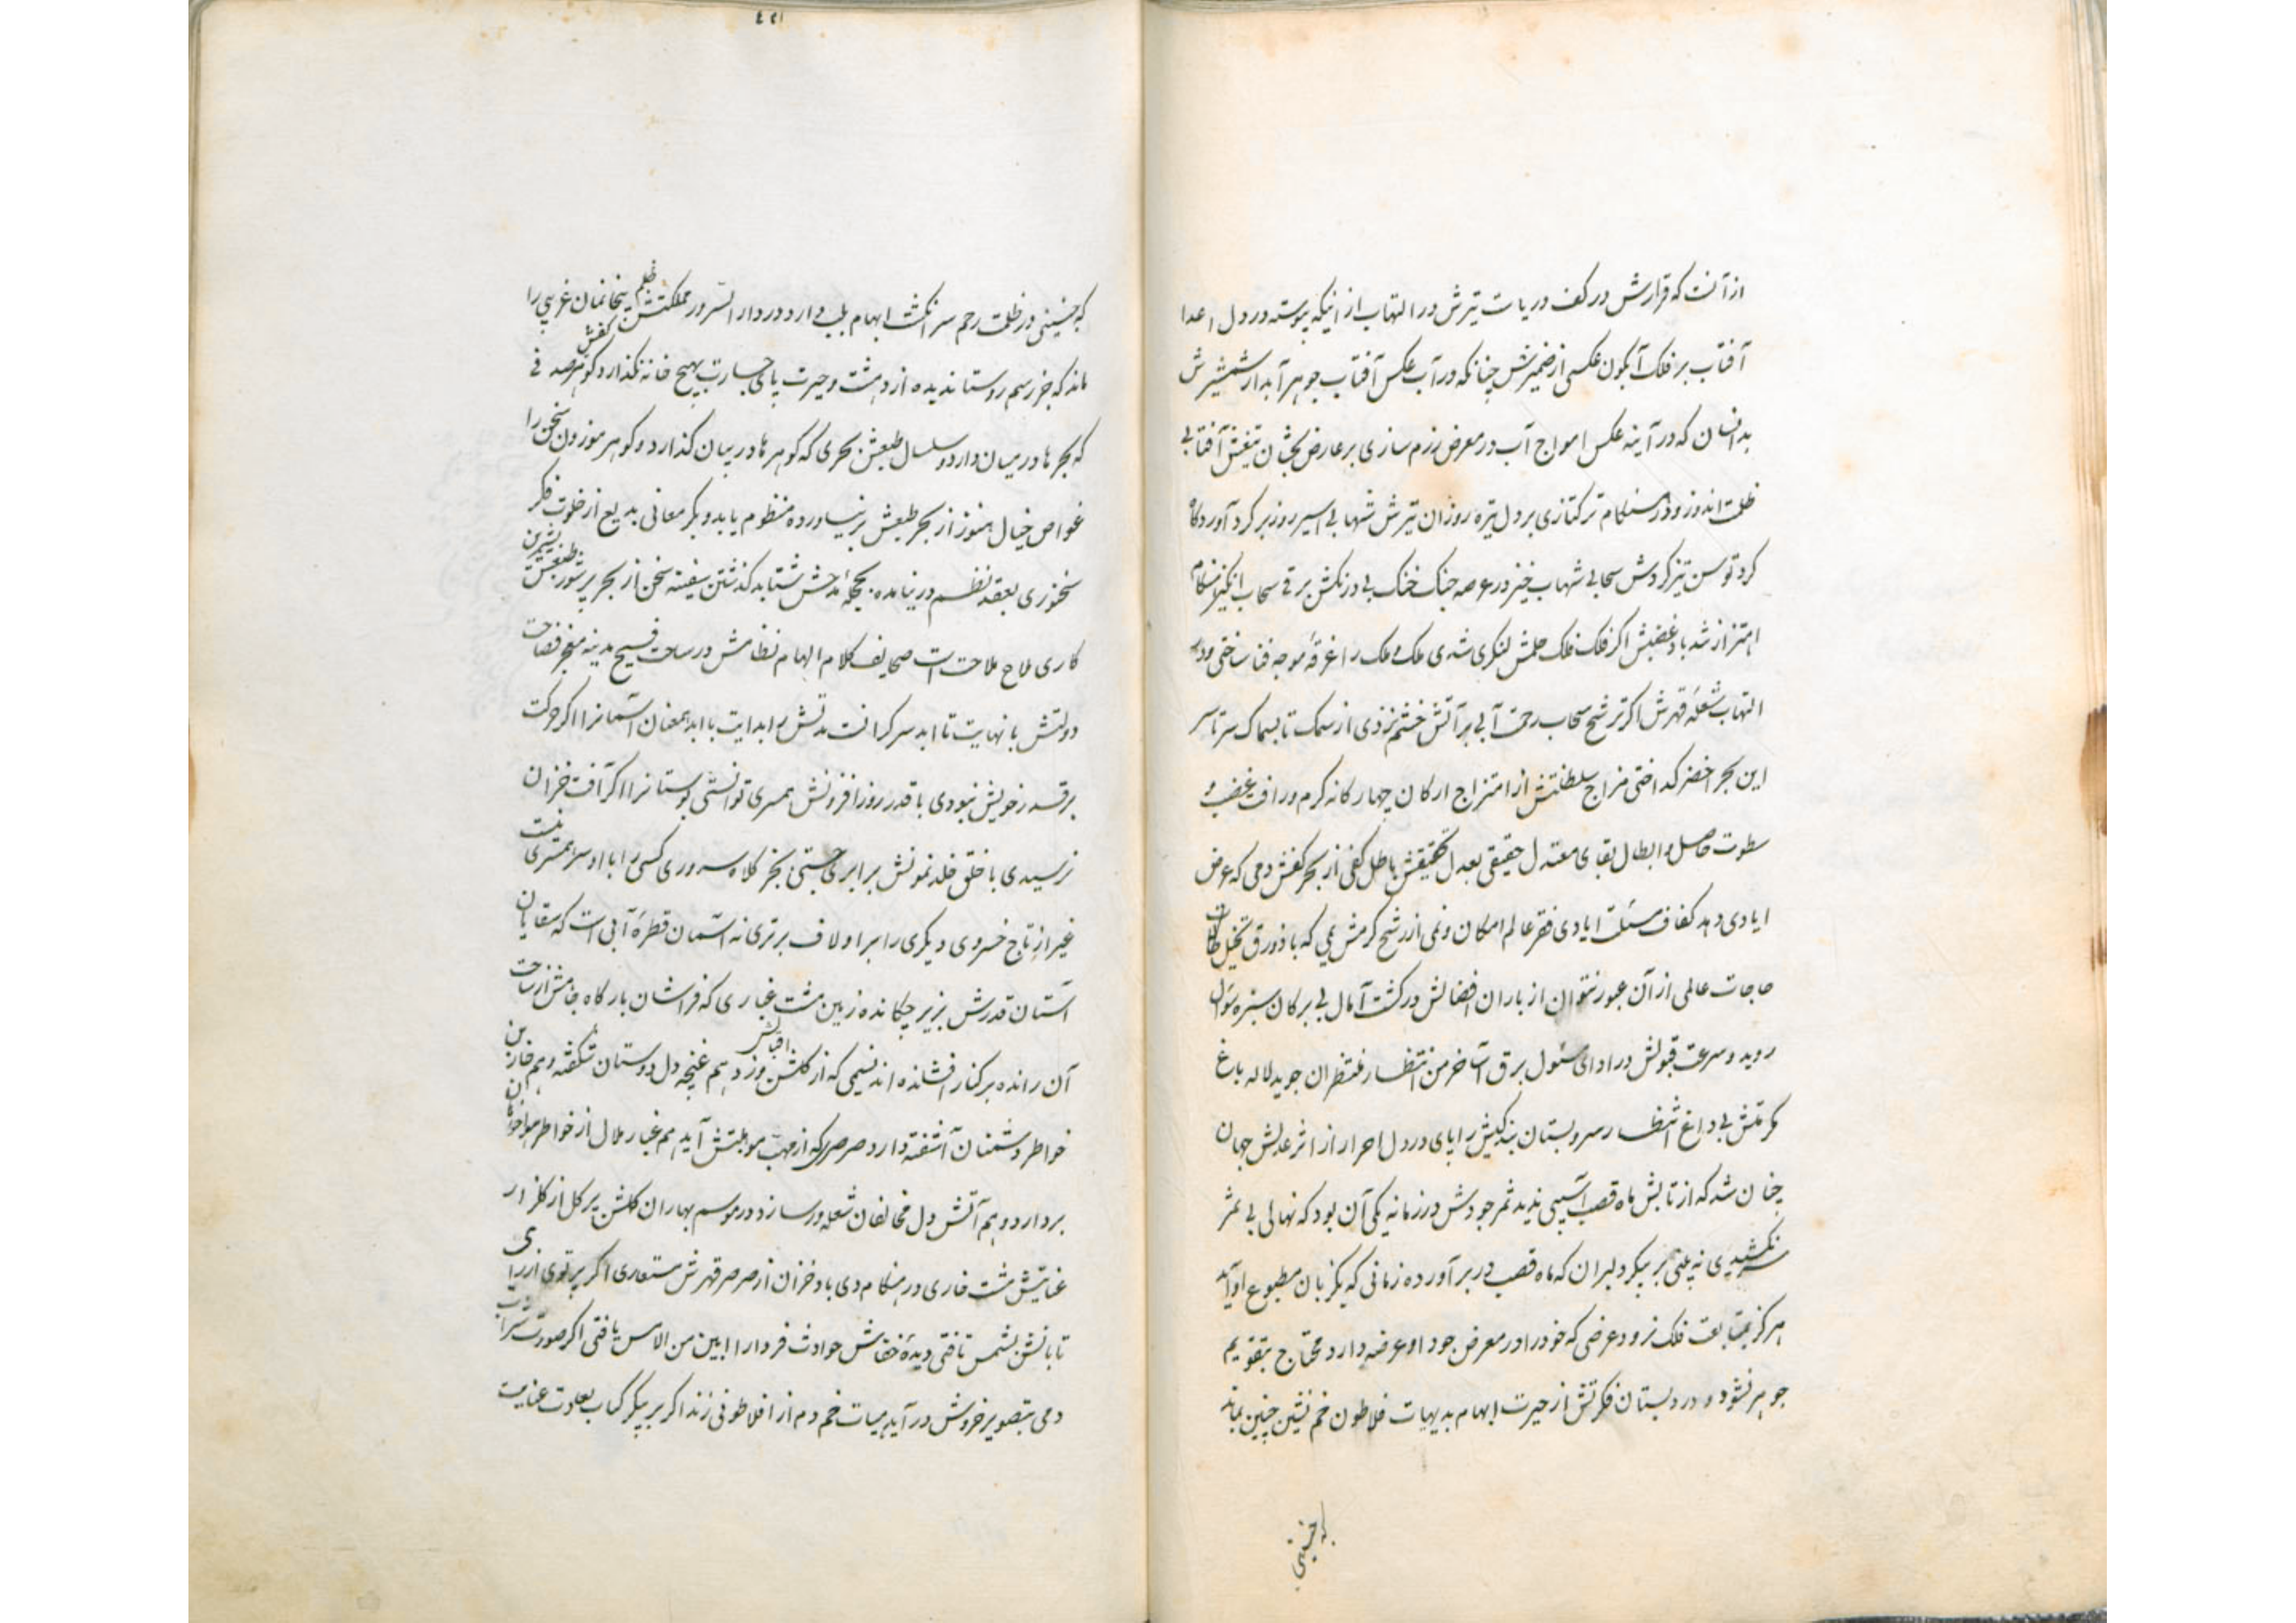 از آنست که قرارش در کف دریاست تیرش در التهاب از اینکه پیوسته در دل اعدا
آفتاب بر فلک آبگون عکسی از ضمیرش چنانکه در آب عکس آفتاب جوهر آبدار شمشیرش
بدانسان که در آینه عکس امواج آب در معرض رزم سازی بر عارض تیغش آفتابی
ظلمت اندوز و در هنگام ترکتازی بر دل تیره روزان تیرش شهابی اسیر روز بر کرد آورد کاه
کرد توسن تیز کردش سحابی شهاب خیز در عرصه جنک خنک بی درنکش برقی سحاب انکیز هنکام
اهتزاز شد باد غضبش اکر فلک فلک حلمش لنکری شدی ملک و ملک را غرقه موجه فنا ساختی و در
التهاب شعله قهرش اکر ترشح سحاب رحمت آبی بر آتش خشم نزدی از سمک تا بسماک سرتاسر
این بحر اخضر کداختی مزاج سلطنتش از امتزاج ارکان چهارکانه کرم و رافت و غضب و
سطوت حاصل و ابطال بقای معتدل حقیقی بعدل تحقیقش باطل کفی از بحر کفش دمی که عرض
ایادی دهد کفاف مسئلت ایادی فقر عالم امکان و نمی از رشح کرمش یمی که با زورق تخیل
حاجات عالمی از آن عبور نتوان از باران افضالش در کشت آمال بی برکان سبزه سئوال
روید و سرعت قبولش در ادای مسئول برق آسا خرمن انتظار منتظران جوید لاله باغ
مکرمتش بی داغ انتظار سرو بستان بندکیش را پای در دل احرار از اثر عدلش جهان
چنان شد که از تابش ماه قصب آسیبی ندید ثمر جودش در زمانه یکی آن بود که نهالی بی ثمر
سر نکشیدی نه پلنی بر پیکر دلبران که ماه قصب در بر آورده زمانی که یکزبان مطبوع او آید
هرکز بمتابعت فلک نرود عرضی که خود را در معرض جود او عرضه دارد محتاج بتقویم
جوهر نشود و در دبستان فکرتش از حیرت ابهام بدیهیات فلاطون خم نشین چنین بماند
که جنینی
٤٢١
که جنینی در ظلمت رحم سر انکشت ابهام بلب دارد در دار السرور مملکتش ظلم بیخانمان غریبی را
ماند که جز رسم روستا ندیده از دهشت و حیرت پای جسارت بهیچ خانه نکذارد کفش
که بحرها در میان دارد و سلسال طبعش بحری که کوهرها در بیان کذارد و کوهر موزون سخن را
غواص خیال هنوز از بحر طبعش بر نیاورده منظوم یابد و بکر معانی بدیع از خلوت فکر
سخنوری بعقد نظم در نیامده بحجله مدحش شتابد کذشتن سفینه سخن از بحر پر شور طبعش شیرین
کاری ملاح ملاحت است صحایف کلام الهام نظامش در ساحت فسیح مدینه فصاحت
دولتش با نهایت تا ابد سرکرانست مدتش را بدایت با ابد همعنان آسمانرا اکر حرکت
برقسر ز خویش نبودی با قدر روز افزونش همسری توانستی بوستانرا اکر آفت خزان
نرسیدی با خلق خلد نمونش برابری جستی بجز کلاه سروری کسی را با او سر همسری نیست
غیر از تاج خسروی دیکری را بر او لاف برتری نه آسمان قطره آبی است که سقایان
آستان قدرش بزیر چکانده زمین مشت غباری که فراشان بارکاه جاهش از ساحت
آن رانده بر کنار افشانده اند نسیمی که از کلشن اقبالش وزد هم غنچه دل دوستان شکفته و هم خار بن
خواطر دشمنان آشفته دارد صرصری که از مهب مهابتش آید هم غبار ملال از خواطر هواخواهان
بردارد و هم آتش دل مخالفان شعله ور سازد در موسم بهاران کلشن پر کل از کلزار
عنایتش مشت خاری در هنکام دی باد خزان از صرصر قهرش مستعاری اکر پرتوی از رای
تابانش بشمس تافتی دیده خفاش حوادث فردا را ابین من الامس یافتی اکر صورت شراب
دمی بتصویر خروش در آید هیئات خم دم از افلاطونی زند اکر بر پیکر کباب بعلوت عنایت